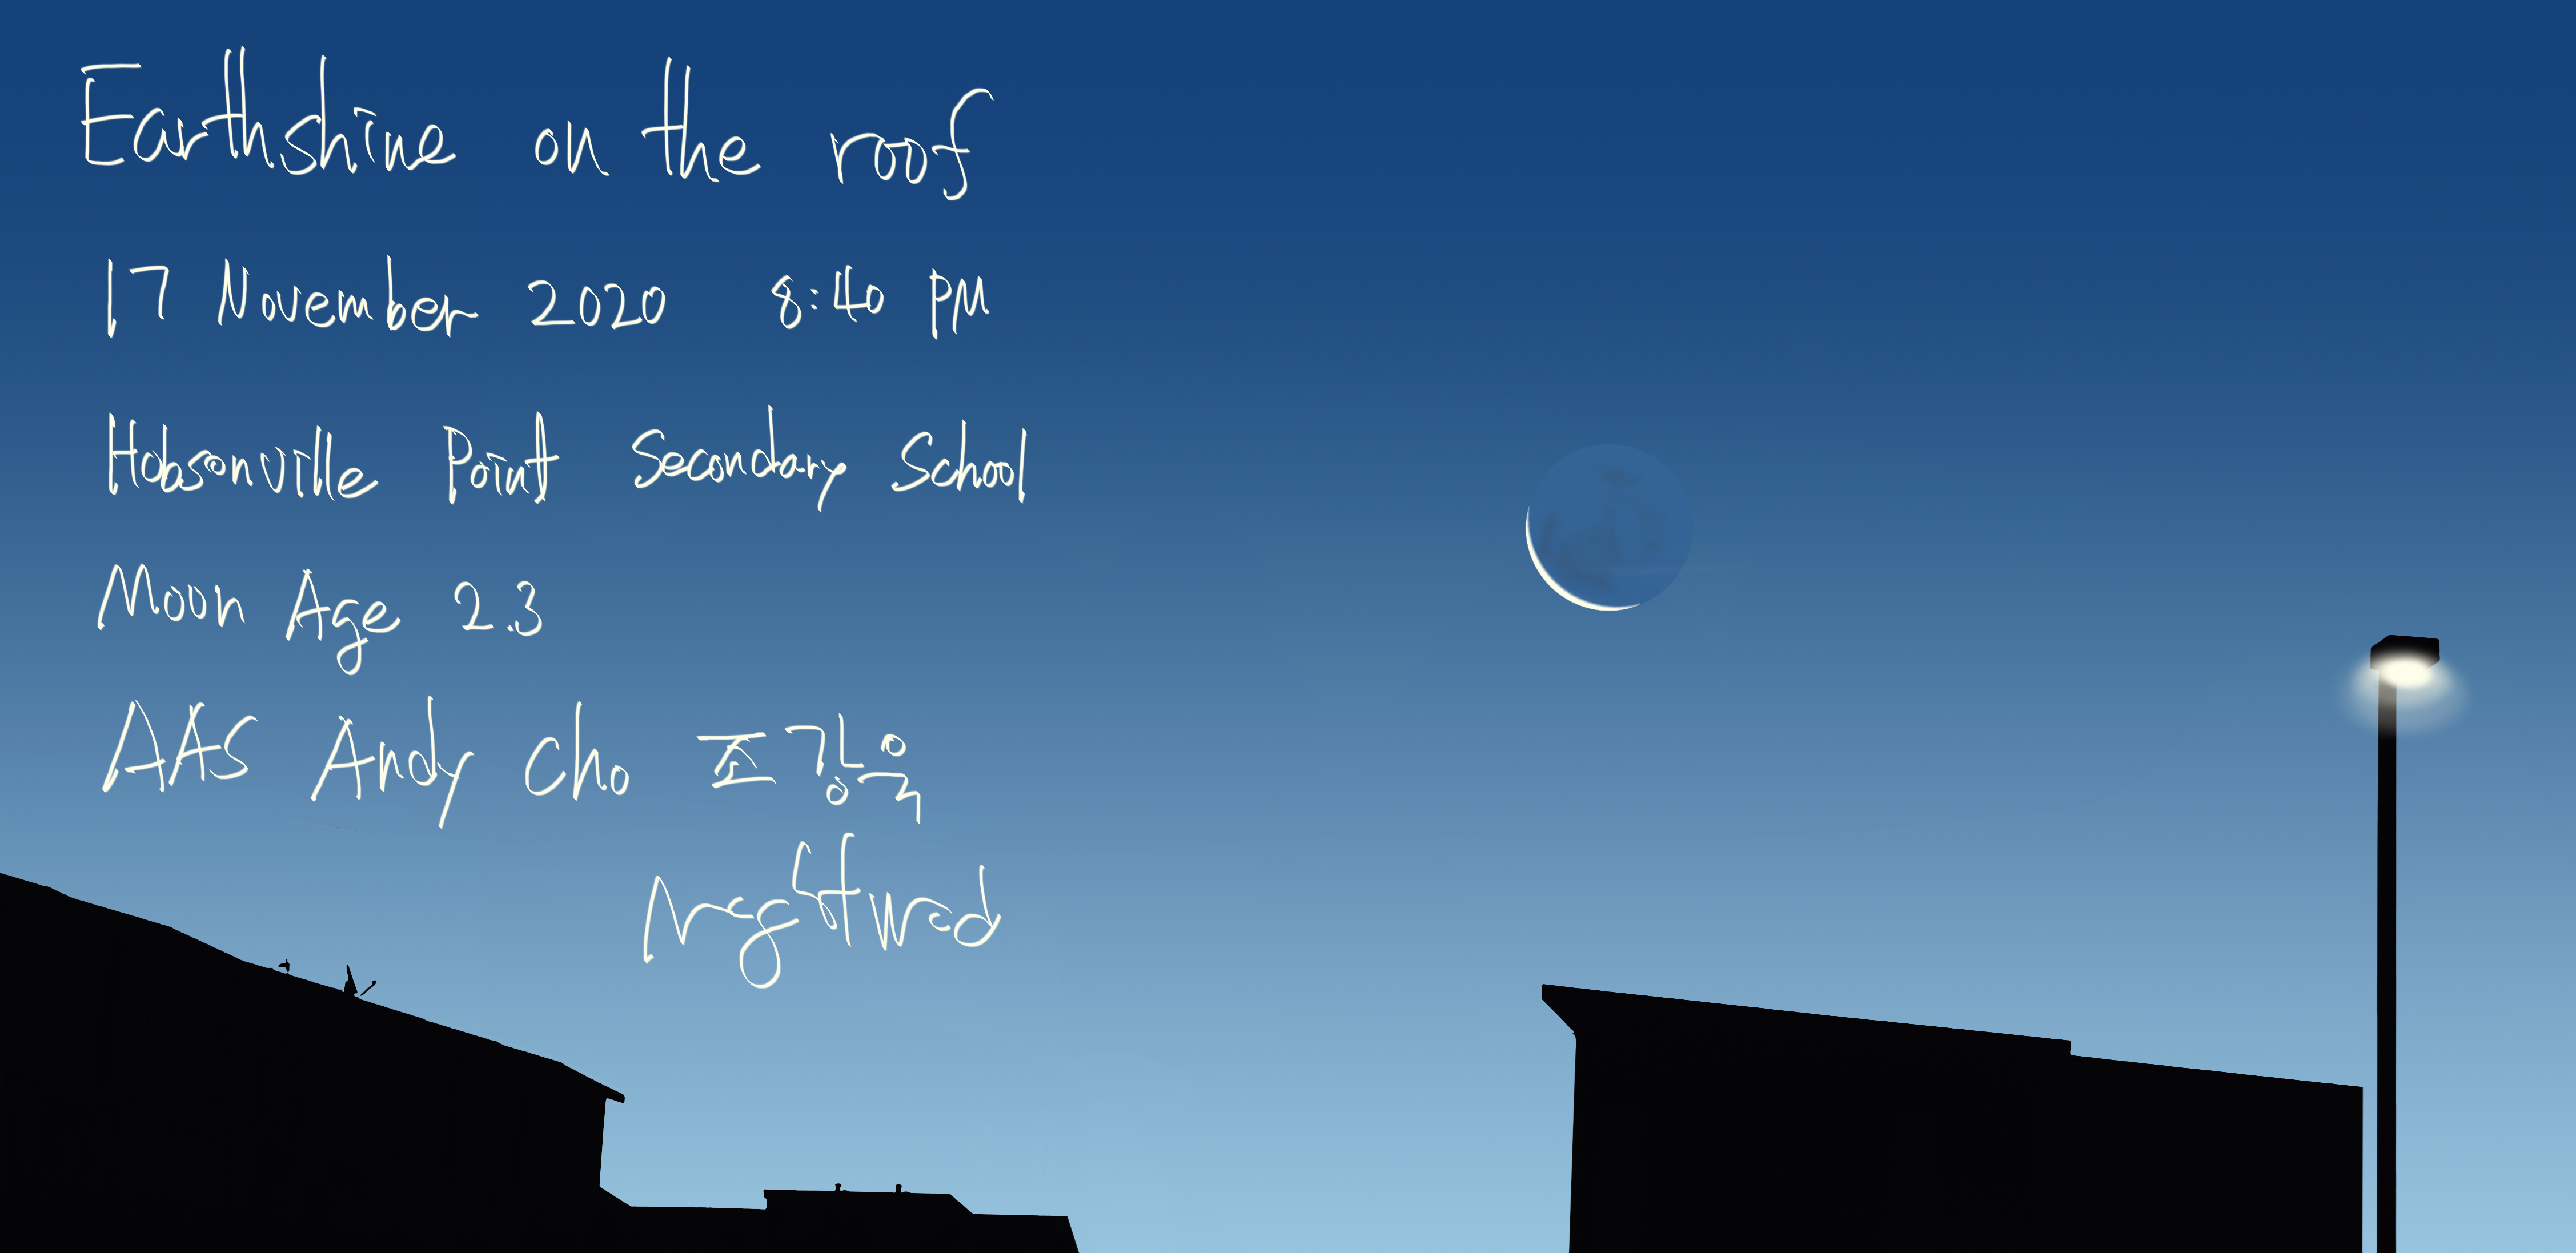 Earthshine on the roof
17 November 2020 8:40 PM
Hobsonville Point Secondary School
Moon Age 2.3
AAS Andy Cho 조강욱